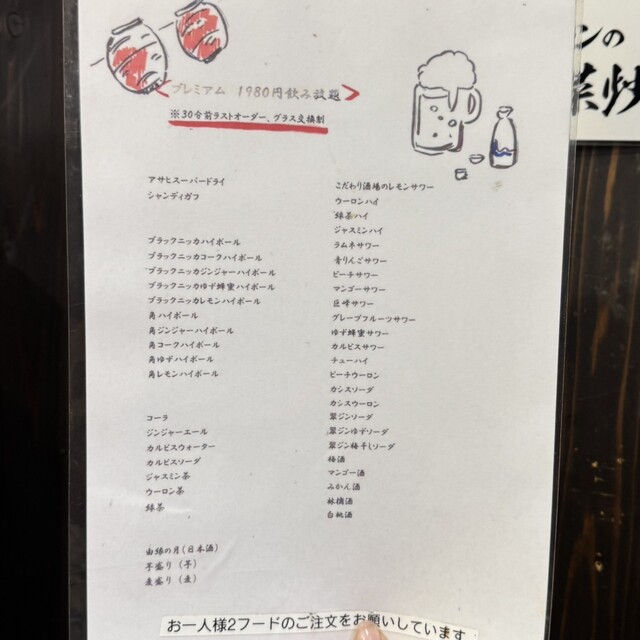 プレミアム 1980円飲み放題
※30分前ラストオーダー、グラス交換制
アサヒスーパードライ
シャンディガフ
ブラックニッカハイボール
ブラックニッカコークハイボール
ブラックニッカジンジャーハイボール
ブラックニッカゆず蜂蜜ハイボール
ブラックニッカレモンハイボール
角ハイボール
角ジンジャーハイボール
角コークハイボール
角ゆずハイボール
角レモンハイボール
コーラ
ジンジャーエール
カルピスウォーター
カルピスソーダ
ジャスミン茶
ウーロン茶
緑茶
由縁の月(日本酒)
芋盛り(芋)
麦盛り(麦)
こだわり酒場のレモンサワー
ウーロンハイ
緑茶ハイ
ジャスミンハイ
ラムネサワー
青りんごサワー
ピーチサワー
マンゴーサワー
巨峰サワー
グレープフルーツサワー
ゆず蜂蜜サワー
カルピスサワー
チューハイ
ピーチウーロン
カシスソーダ
カシスウーロン
翠ジンソーダ
翠ジンゆずソーダ
翠ジン梅干しソーダ
梅酒
マンゴー酒
みかん酒
林檎酒
白桃酒
お一人様2フードのご注文をお願いしています
ンの
菜炒